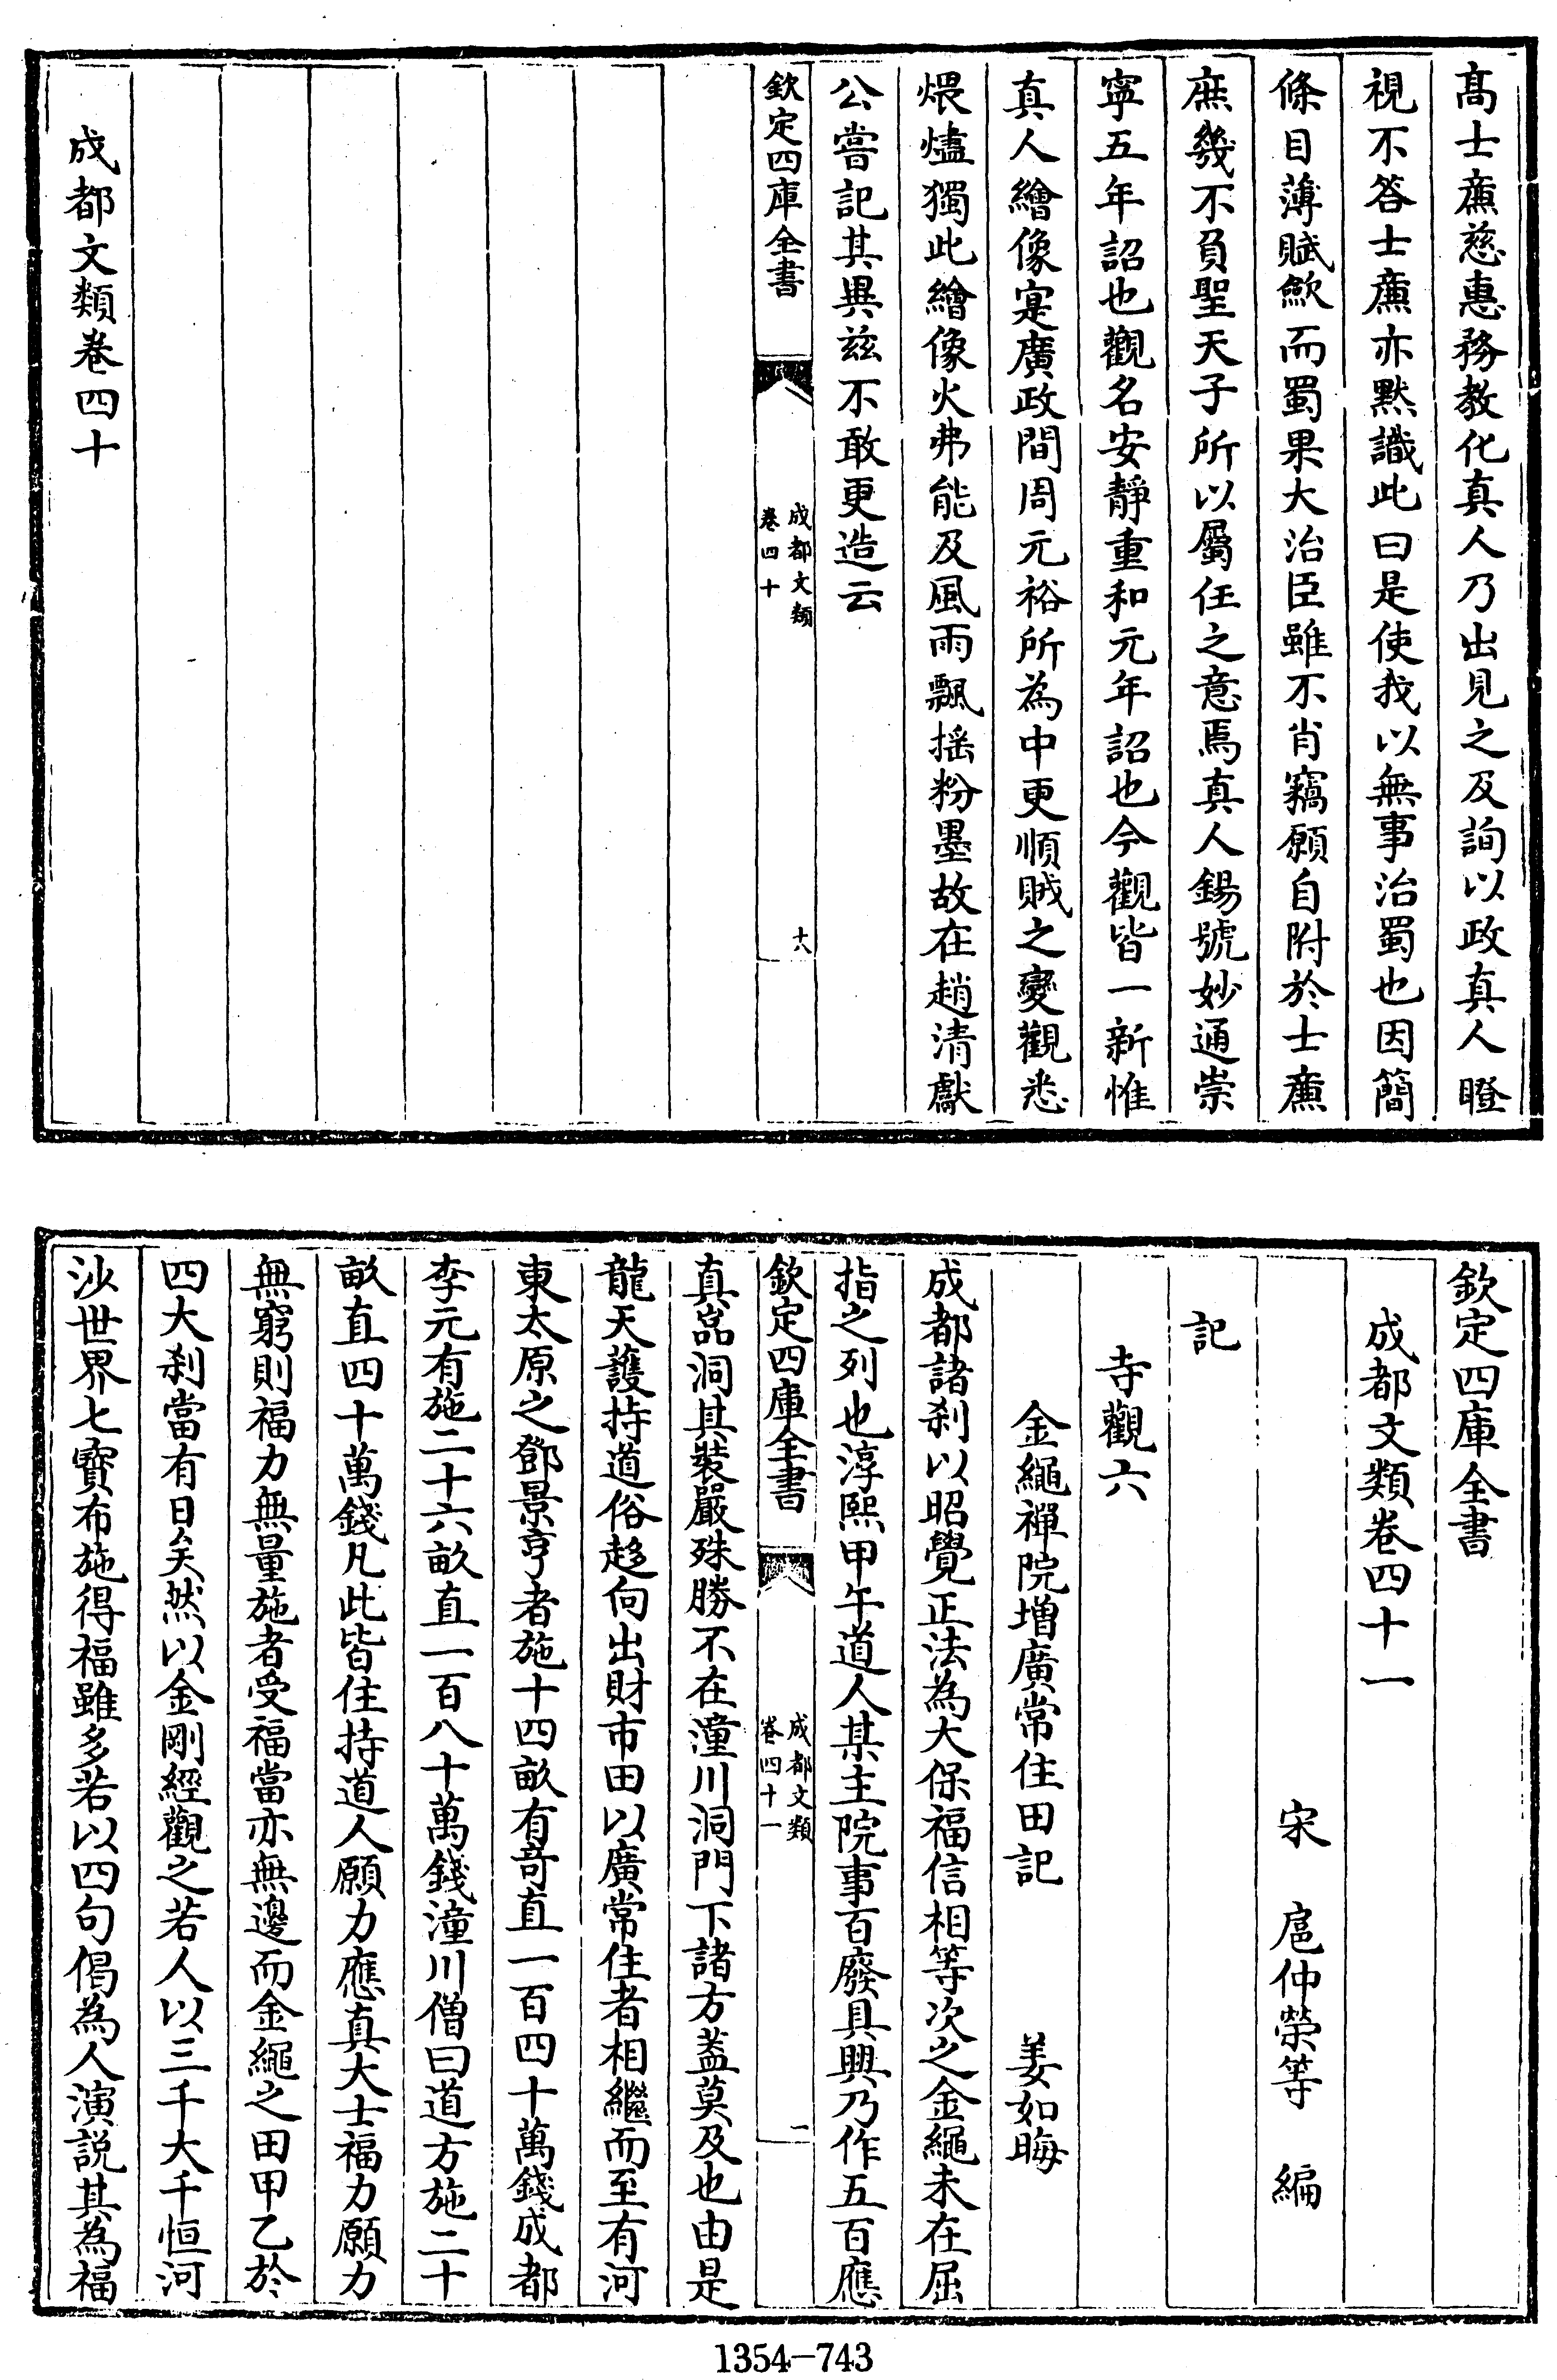 髙士㢘慈惠務教化真人乃出見之及詢以政真人瞪
視不答士㢘亦黙識此曰是使我以無事治蜀也因簡
條目薄賦歛而蜀果大治臣雖不肖竊願自附於士㢘
庶幾不負聖天子所以屬任之意焉真人錫號妙通崇
寧五年詔也觀名安靜重和元年詔也今觀皆一新惟
真人繪像寔廣政間周元裕所為中更順賊之變觀悉
煨燼獨此繪像火弗能及風雨飄揺粉墨故在趙清獻
公嘗記其異兹不敢更造云
欽定四庫全書
成都文類
卷四十
十八
成都文類卷四十
欽定四庫全書
成都文類卷四十一
宋 扈仲榮等 編
記
寺觀六
金繩禪院増廣常住田記 姜如晦
成都諸刹以昭覺正法為大保福信相等次之金繩未在屈
指之列也淳熙甲午道人某主院事百廢具興乃作五百應
欽定四庫全書
成都文類
卷四十一
一
真嵓洞其裝嚴殊勝不在潼川洞門下諸方葢莫及也由是
龍天護持道俗趍向出財市田以廣常住者相繼而至有河
東太原之鄧景亨者施十四畝有竒直一百四十萬錢成都
李元有施二十六畝直一百八十萬錢潼川僧曰道方施二十
畝直四十萬錢凡此皆住持道人願力應真大士福力願力
無窮則福力無量施者受福當亦無邊而金繩之田甲乙於
四大刹當有日矣然以金剛經觀之若人以三千大千恒河
沙世界七寳布施得福雖多若以四句偈為人演説其為福
1354—743